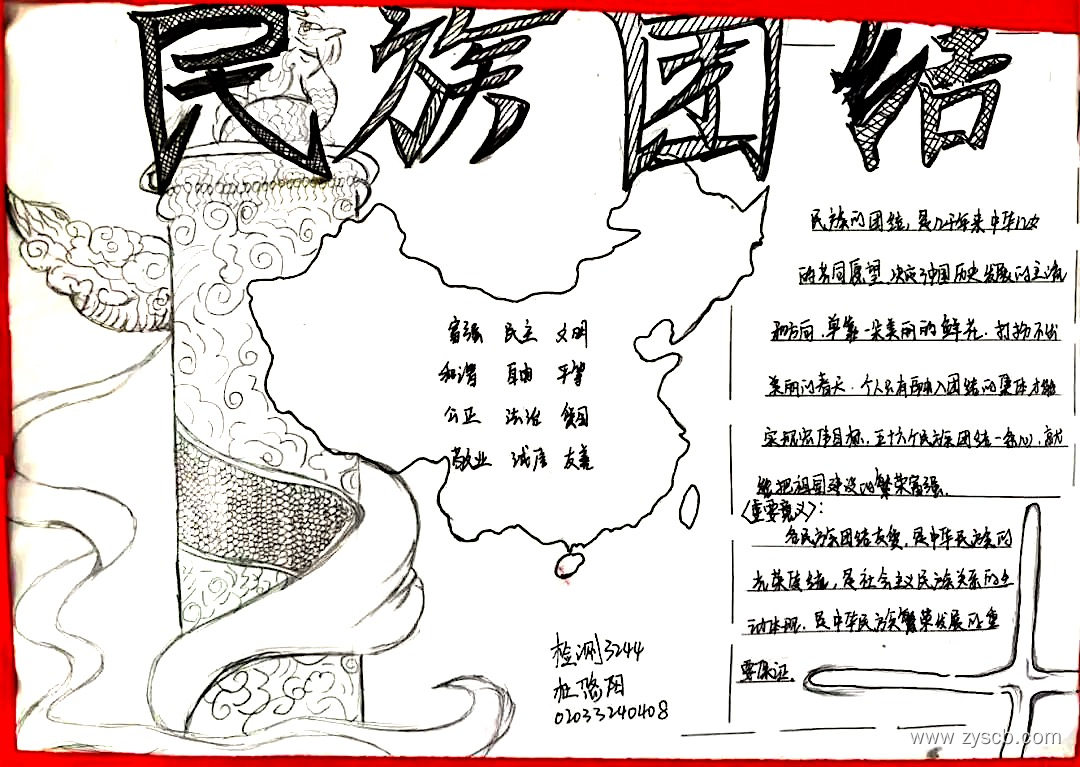 民族团结
富强 民主 文明
和谐 自由 平等
公正 法治 爱国
敬业 诚信 友善
民族的团结,是几千年来中华儿女
的共同愿望,决定了中国历史发展的主流
和方向.单靠一朵美丽的鲜花.打扮不出
美丽的春天.个人只有融入团结的集体才能
实现宏伟目标,五十六个民族团结一条心,就
能把祖国建设的繁荣富强.
〈重要意义〉:
各民族团结友爱,是中华民族的
光荣传统,是社会主义民族关系的生
动体现,是中华民族繁荣发展的重
要保证.
检测3244
杜悠阳
02033240408
www.zyscb.com